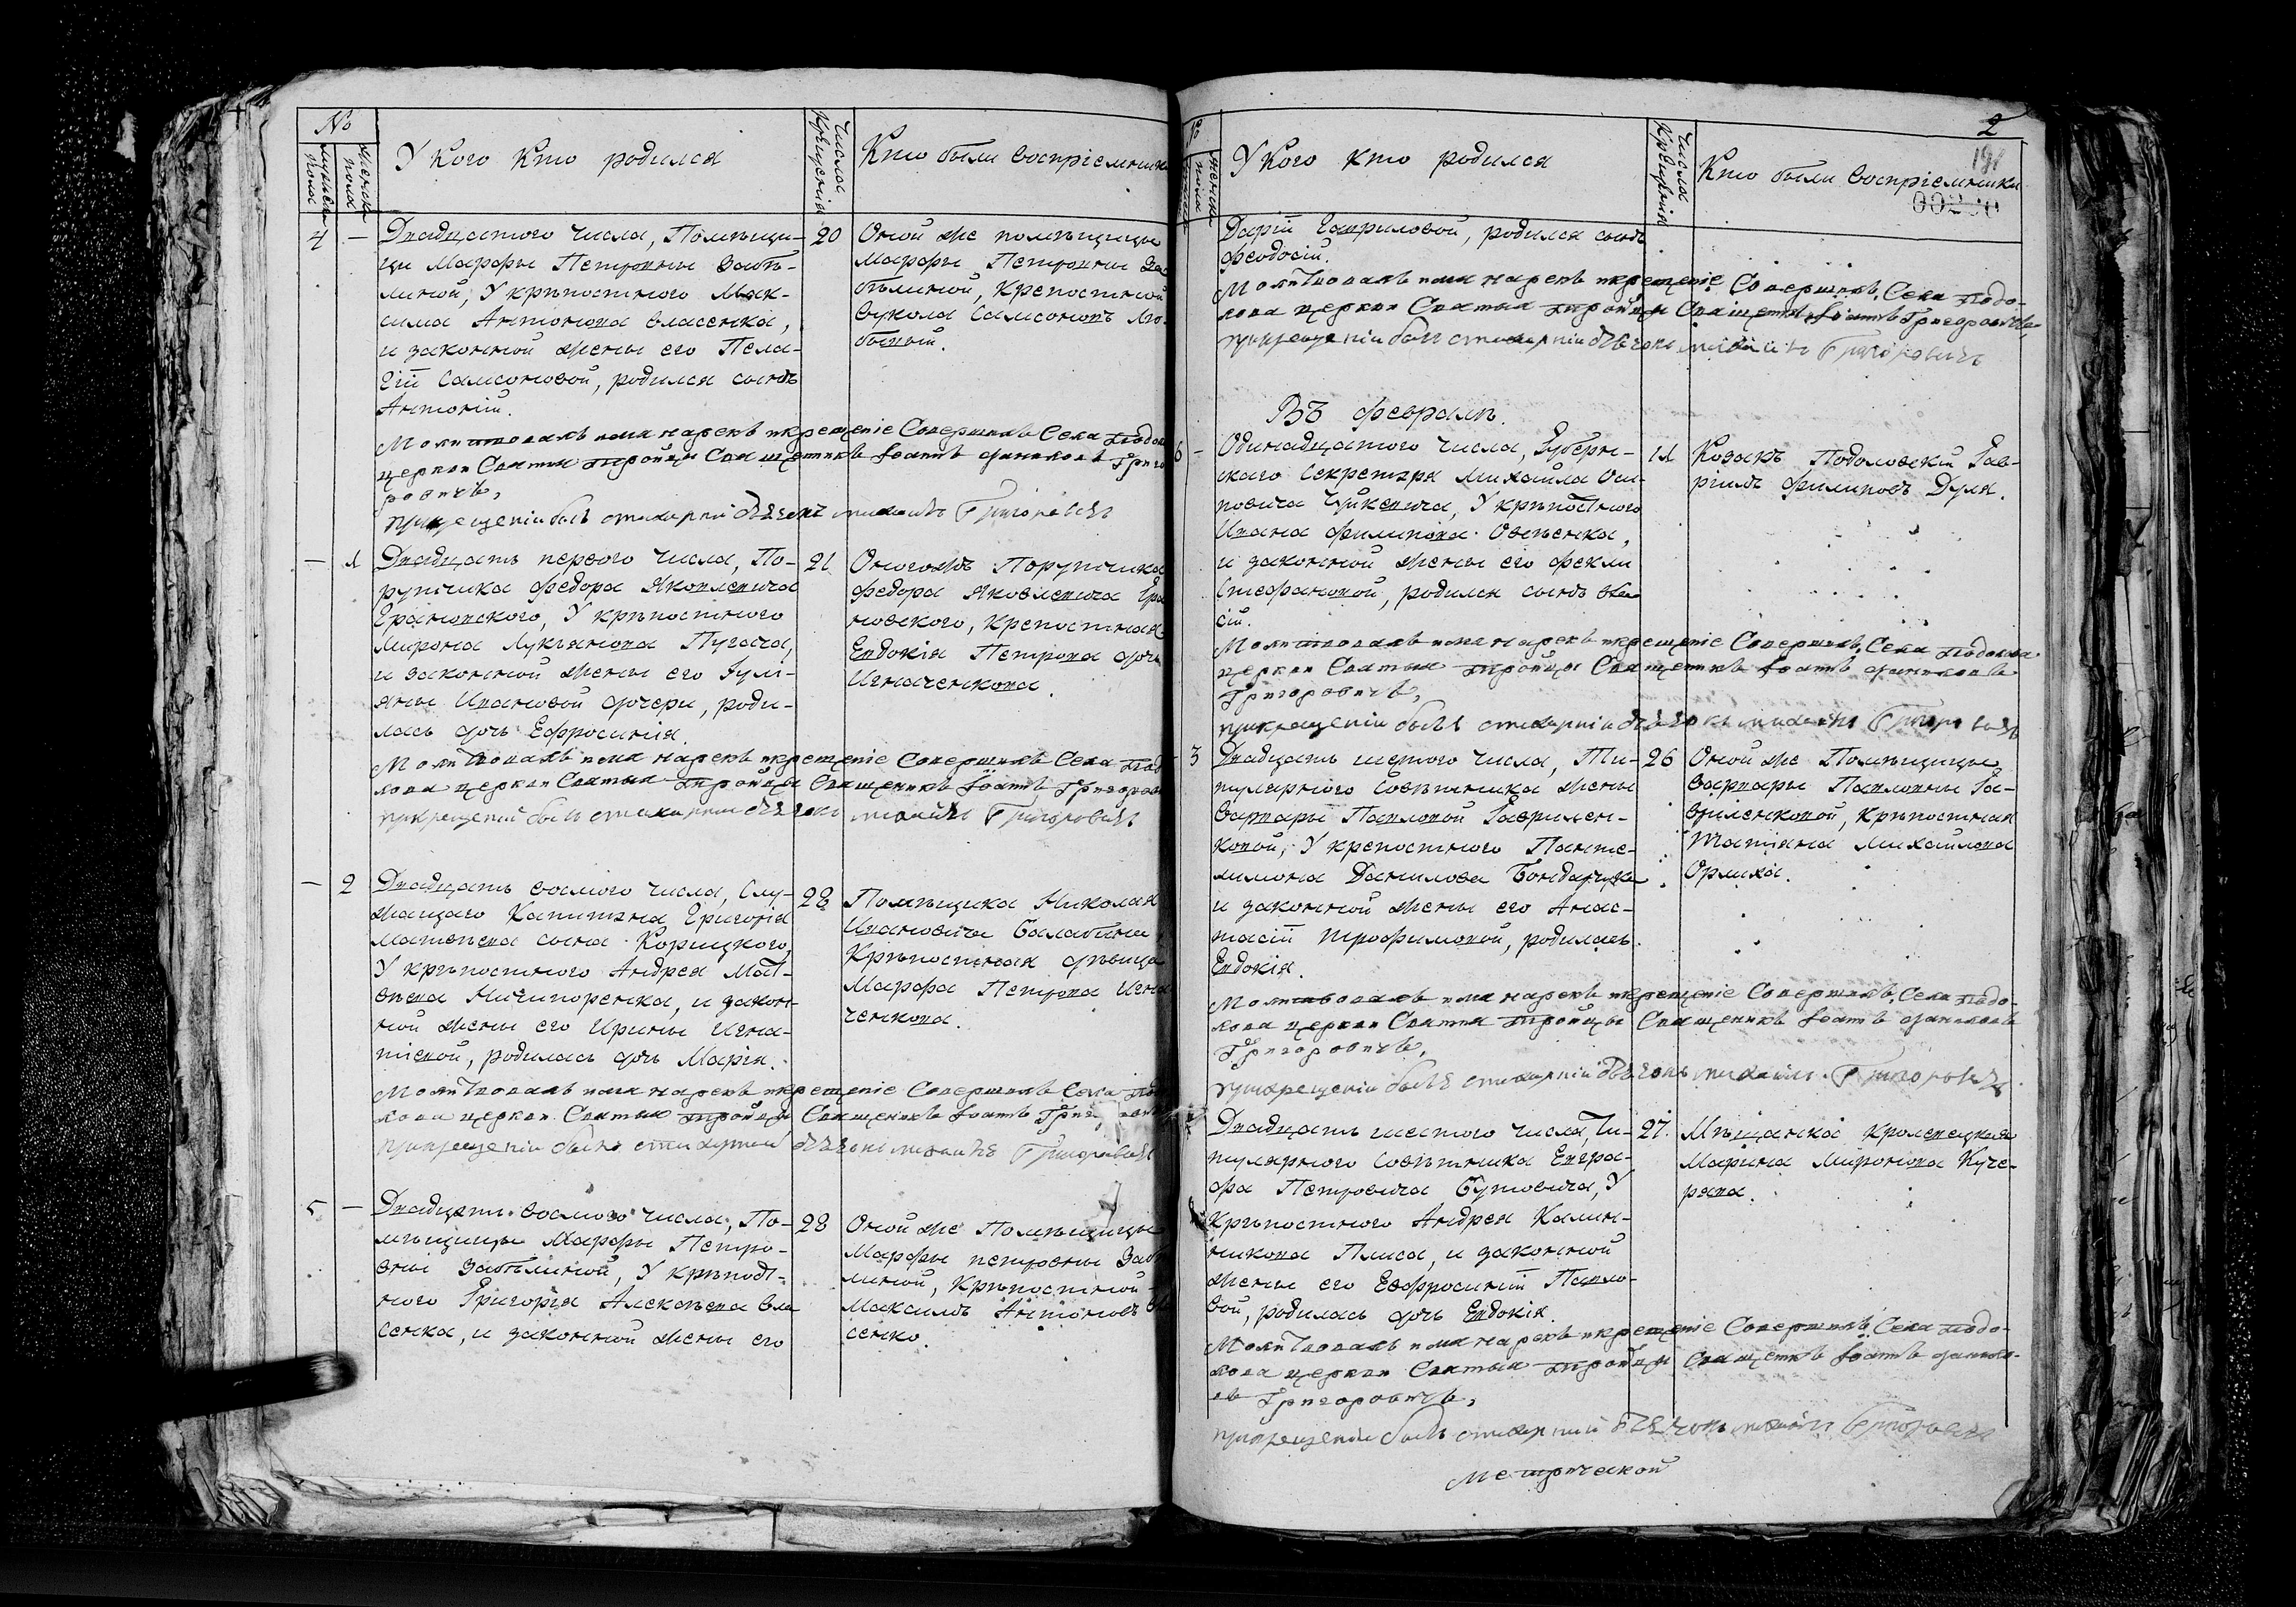 №
мужеска пола
женска пола
У кого кто родился
Числа крещенія
Кто были воспріемники
4 — Двадцатого числа, Помѣщи-
цы Марфы Петровны Забѣ-
линой, У крѣпостного Мак-
сима Антонова Власенка,
и законной жены его Пела-
гіи Самсоновой, родился сынъ
Антоній.
20
Оной же помѣщицы
Марфы Петровны За
бѣлиной, Крепостной
Вукола Самсоновъ
Молитвовалъ имя нарекъ и крещеніе Совершилъ Села Подо
церкви Святыя Тройцы Священникъ Іоаннъ Даниловъ Григо
ровичъ,
При крещеніи былъ стихарній дьячокъ Михаилъ Григоровичъ
— 1 Двадцать первого числа, По-
ручика Федора Яковлевича
Ерановского, У крѣпостного
Мирона Лукьянова Пугача,
и законной жены его Іулі-
яны Ивановой дочери, роди-
лась дочь Ефросинія.
21
Оногожъ Поручика
Федора Яковлевича Ера
новского, крепостная
Евдокія Петрова дочь
Игначенкова.
Молитвовалъ имя нарекъ и крещеніе Совершилъ Села Под
лова церкви Святыя Тройцы Священникъ Іоаннъ Григоров
При крещеніи былъ стихарній дьячокъ Михаилъ Григоровичъ
— 2 Двадцать восмого числа, Слу-
жащаго Капитана Григорія
Матвѣева сына Корицкого,
У крѣпостного Андрея Мат-
вѣева Ничипоренка, и закон-
ной жены его Ирины Игна-
тіевой, родилась дочь Марія.
28
Помѣщика Николая
Ивановича Балабина
Крѣпостная дѣвица
Марфа Петрова Игна
ченкова.
Молитвовалъ имя нарекъ и крещеніе Совершилъ Села По
лова церкви Святыя Тройцы Священникъ Іоаннъ
При крещеніи былъ стихарній дьячокъ Михаилъ Григоровичъ
5 — Двадцать восмого числа, По-
мѣщицы Марфы Петро-
вны Забѣлиной, У крѣпост-
ного Григорія Алексѣева Вла
сенка, и законной жены его
28
Оной же Помѣщицы
Марфы петровны Забѣ
линой, Крѣпостной
Максимъ Антоновъ Вла
сенко.
2
191
№
У кого кто родился
Числа Крещенія
Кто были воспріемники
Даріи Гавриловой, родился сынъ
Феодосій.
Молитвовалъ имя нарекъ и крещеніе Совершилъ, Села Подо-
лова церкви Святыя Тройцы Священникъ Іоаннъ Григоровичъ,
При крещеніи былъ стихарній дьячокъ Михаилъ Григоровичъ
Въ февралѣ.
6 — Одинадцатого числа, Губерн-
скаго Секретаря Михайла Оси-
повича Чуйкевича, У крѣпостного
Ивана Филипова Овсѣенка,
и законной жены его Феклы
Стефановой, родился сынъ Вла
сій.
11
Козакъ Подоловскій Гав-
ріилъ Филиповъ Дуля.
Молитвовалъ имя нарекъ и крещеніе Совершилъ, Села Подолова
церкви Святыя Тройцы Священникъ Іоаннъ Даниловъ
Григоровичъ,
При крещеніи былъ стихарній дьячокъ Михаилъ Григоровичъ
3 Двадцать шестого числа, Ти-
тулярного Совѣтника жены
Варвары Павловой Гаврилен-
ковой, У крепостного Панте-
лимона Данилова Бондаренка
и законной жены его Анас-
тасіи Трофимовой, родилась
Евдокія.
26
Оной же Помѣщицы
Варвары Павловны Га-
вриленковой, Крѣпостная
Татіана Михайлова
Орлиха.
Молитвовалъ имя нарекъ и крещеніе Совершилъ, Села Подо-
лова церкви Святыя Тройцы Священникъ Іоаннъ Даниловъ
Григоровичъ,
При крещеніи былъ стихарній дьячокъ Михаилъ Григоровичъ
Двадцать шестого числа, Ти-
тулярного Совѣтника Евгра-
фа Петровича Бутовича, У
крѣпостного Андрея Калин-
никова Плиса, и законной
жены его Евфросиніи Павло-
вой, родилась дочь Евдокія.
27.
Мѣщанка Кролевецкая
Марина Миронова Куче-
рява.
Молитвовалъ имя нарекъ и крещеніе Совершилъ, Села Подо-
лова церкви Святыя Тройцы Священникъ Іоаннъ Данило-
въ Григоровичъ,
При крещеніи былъ стихарній дьячокъ Михаилъ Григоровичъ
Метрической